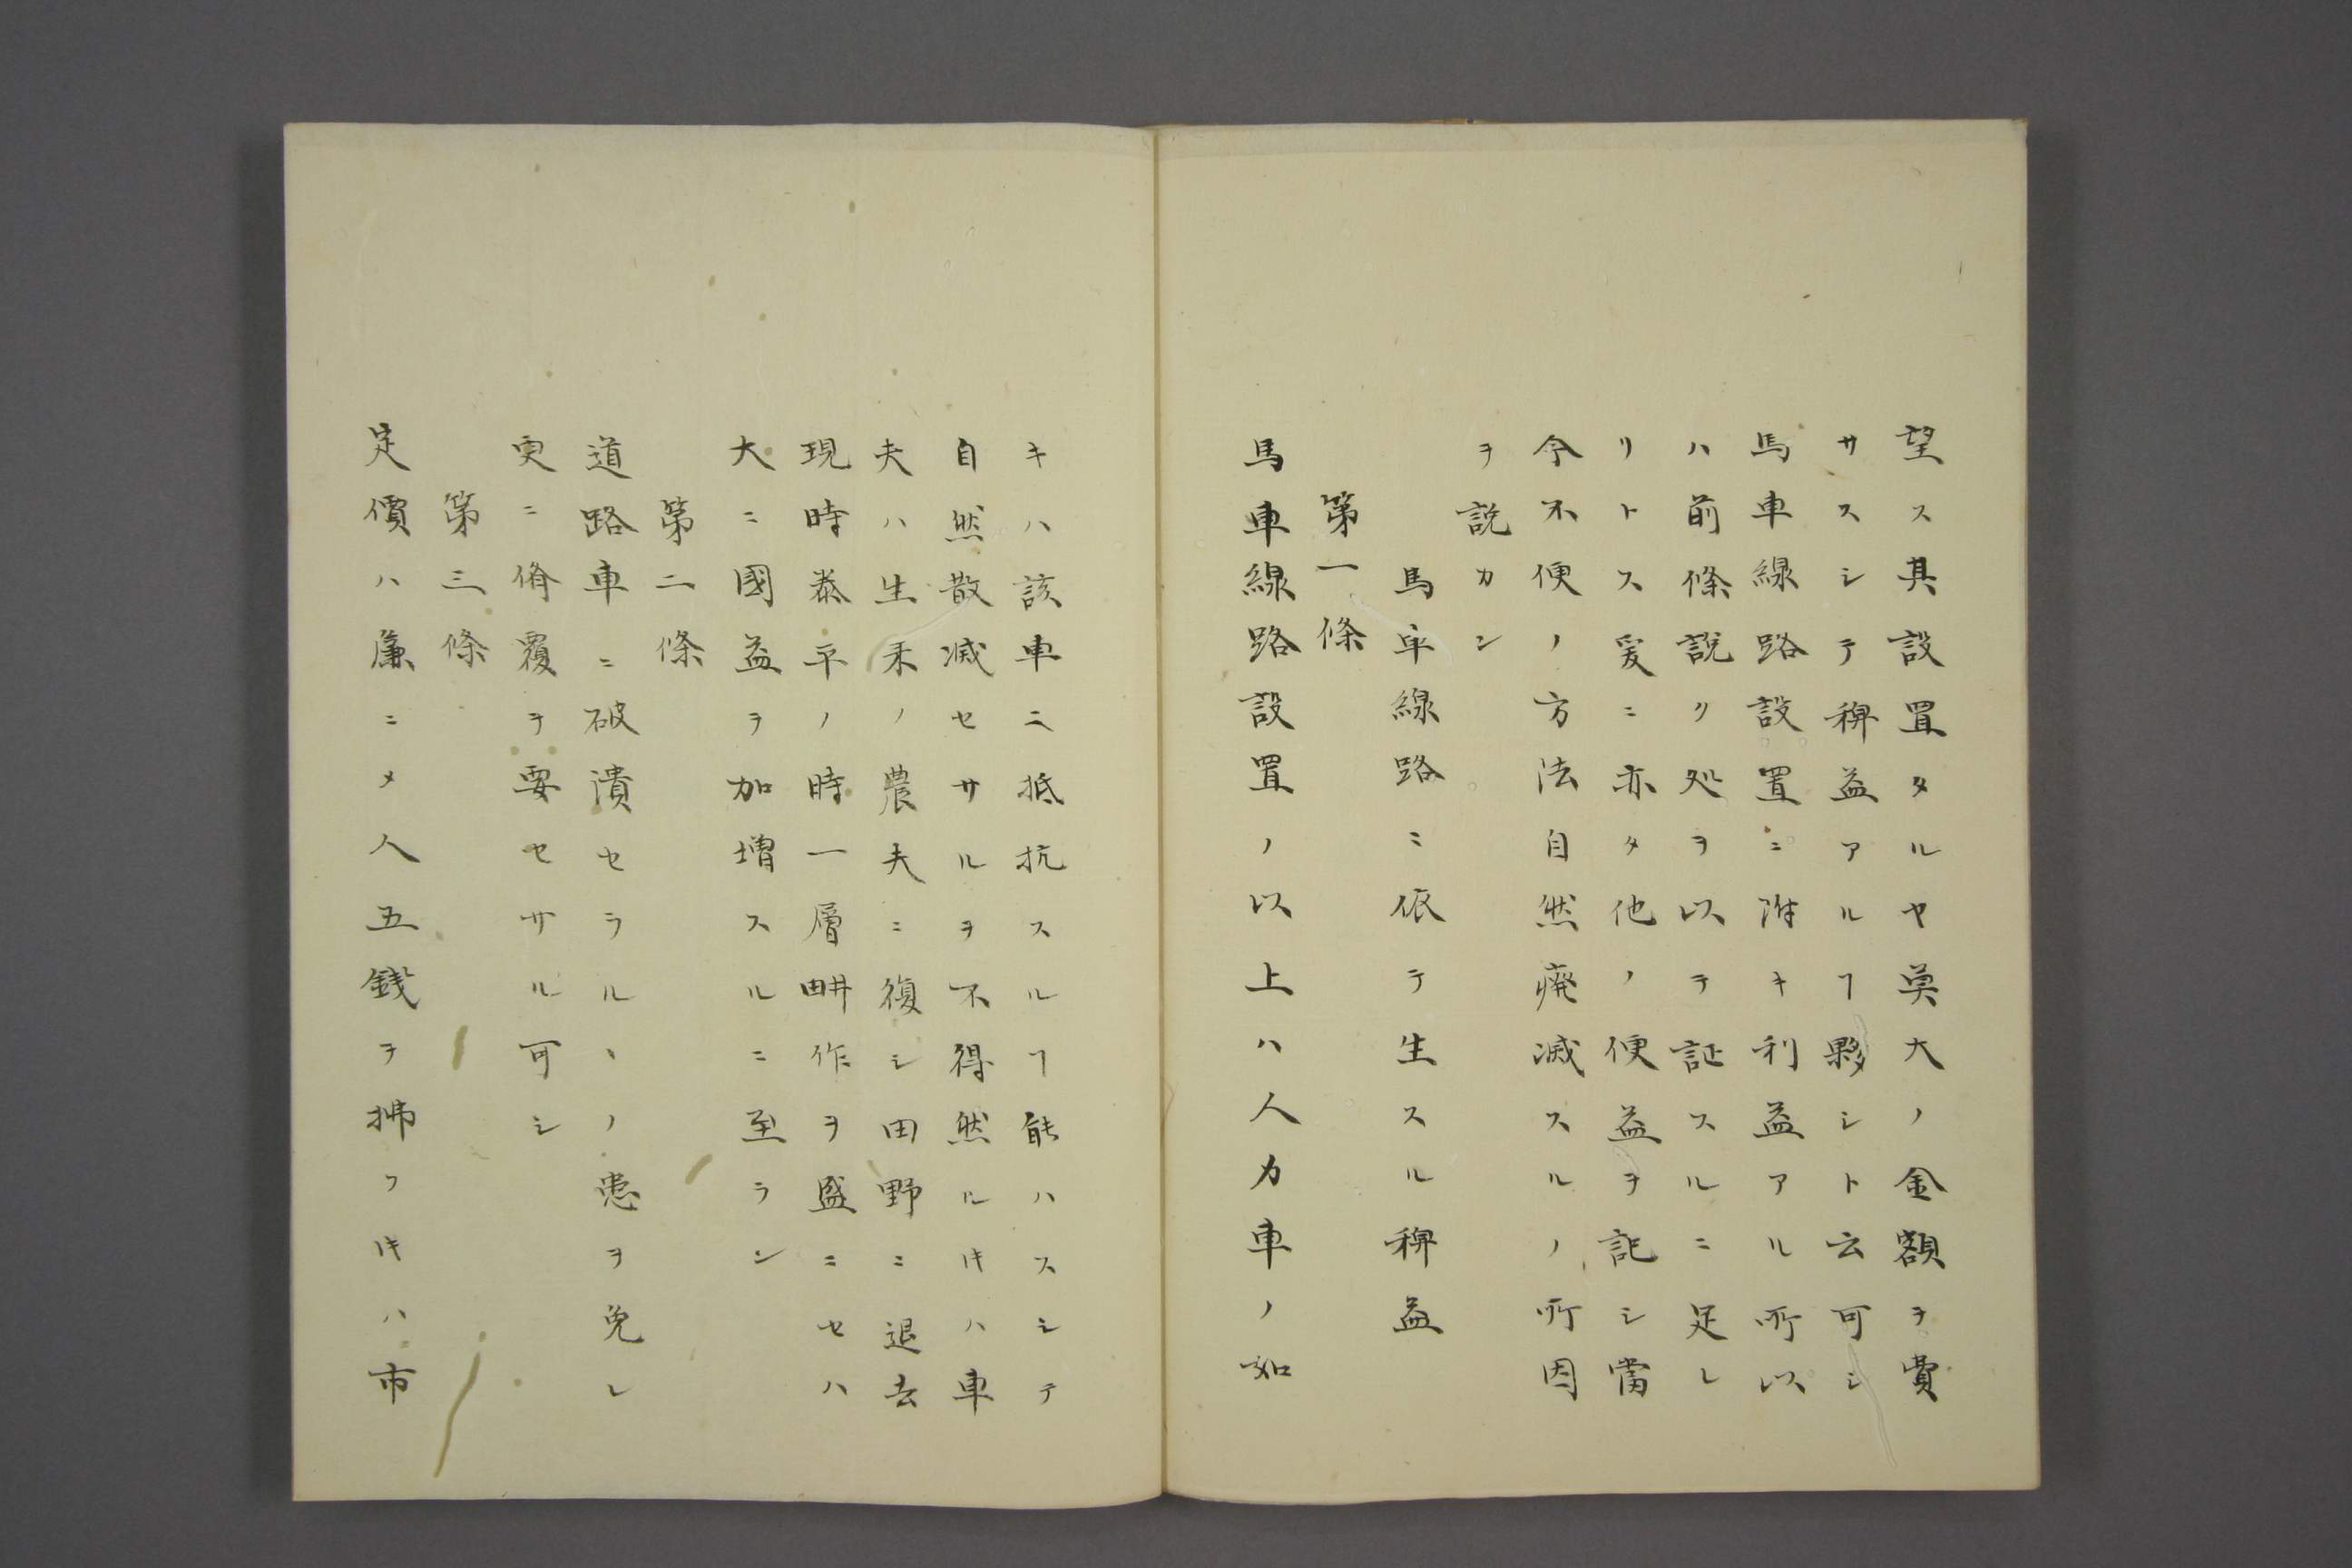 望ス其設置タルヤ莫大ノ金額ヲ費
サスシテ稗益アルヿ夥シト云可シ
馬車線路設置ニ附キ利益アル所以
ハ前條說ク処ヲ以テ証スルニ足レ
リトス爰ニ亦タ他ノ便益ヲ記シ當
今不便ノ方法自然廃滅スルノ所因
ヲ説カン
馬車線路ニ依テ生スル稗益
第一條
馬車線路設置ノ以上ハ人力車ノ如
キハ該車ニ抵抗スルヿ能ハスシテ
自然散减セサルヲ不得然ルキハ車
夫ハ生来ノ農夫ニ復シ田野ニ退去
現時泰平ノ時一層畊作ヲ盛ニセハ
大ニ國益ヲ加増スルニ至ラン
第二條
道路車ニ破潰セラルヽノ患ヲ免レ
更ニ脩覆ヲ要セサル可シ
第三條
定價ハ廉ニメ人五銭ヲ拂フキハ市